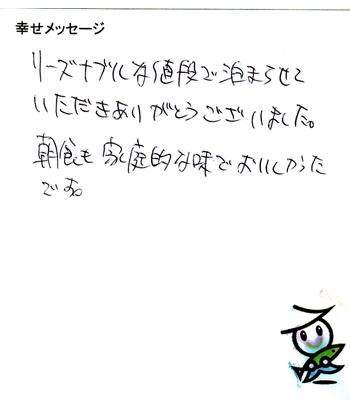 幸せメッセージ
リーズナブルな値段で泊まらせて
いただきありがとうございました。
朝食も家庭的な味でおいしかった
です。